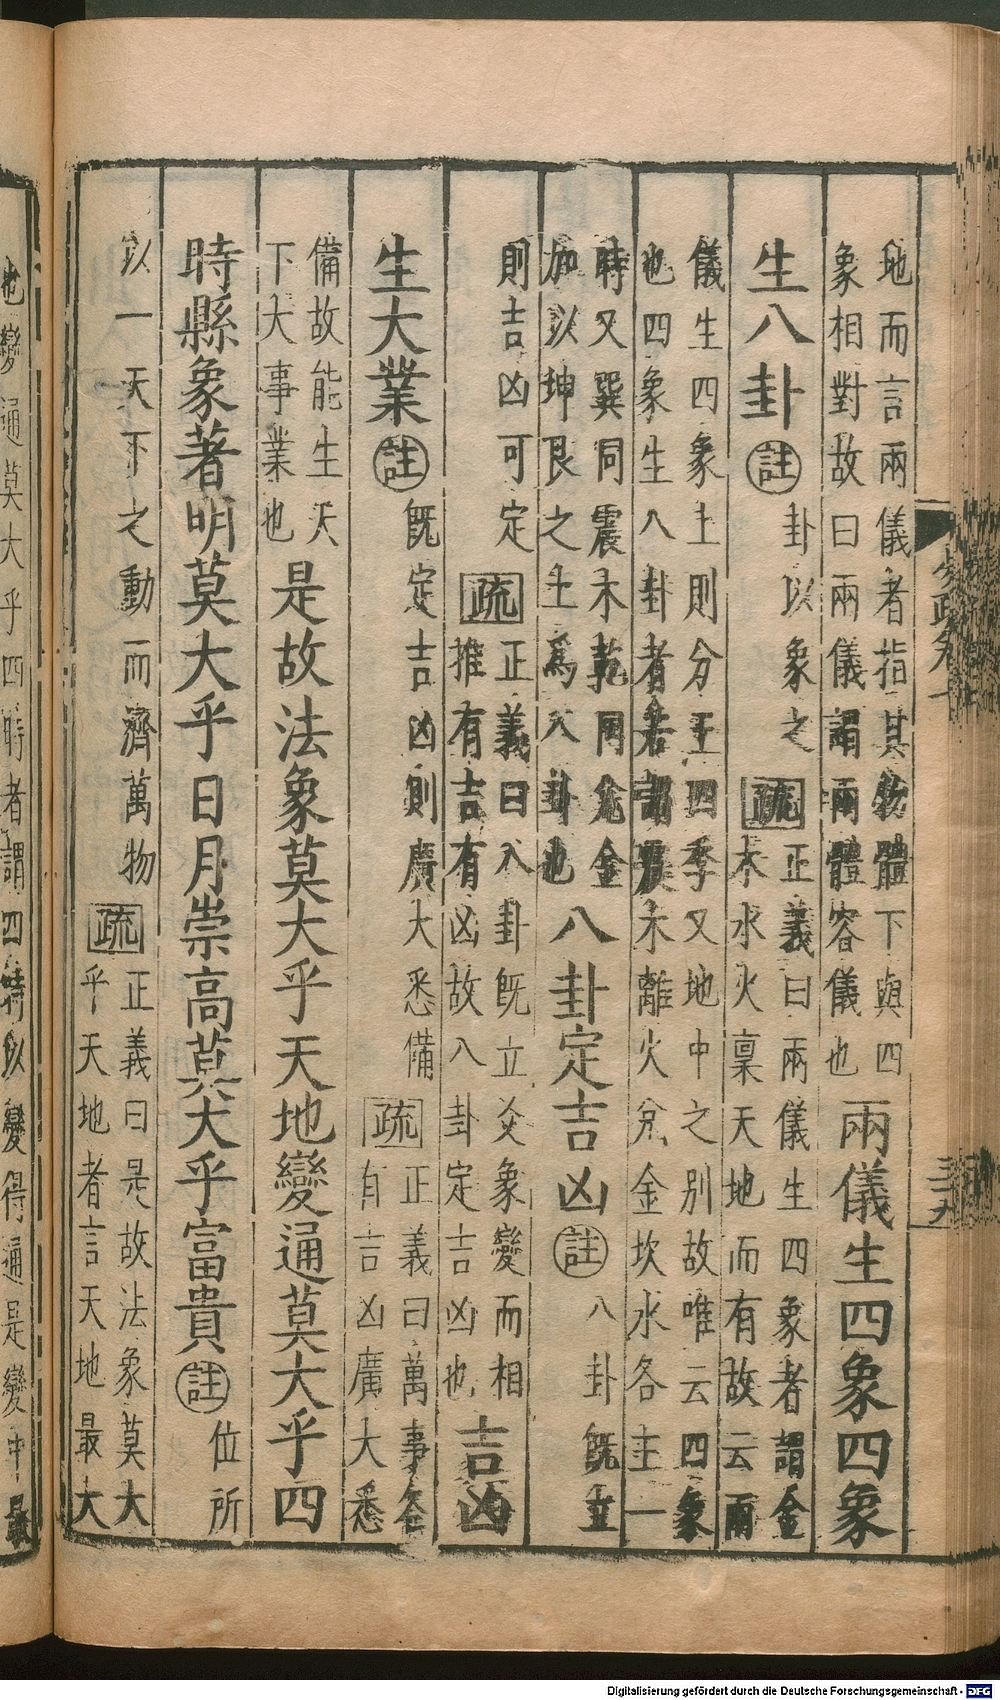 地而言兩儀者指其物體下與四
象相對故曰兩儀謂兩體容儀也
兩儀生四象四象
生八卦
註
卦以象之
疏
正義曰兩儀生四象者謂金
木水火稟天地而有故云兩
儀生四象土則分王四季又地中之別故唯云四象
也四象生八卦者若謂震木離火兌金坎水各主一
時又巽同震木乾同兌金
加以坤艮之土為八卦也
八卦定吉凶
註
八卦既立
則吉凶可定
疏
正義曰八卦既立爻象變而相
推有吉有凶故八卦定吉凶也
吉凶
生大業
註
既定吉凶則廣大悉備
疏
正義曰萬事各
有吉凶廣大悉
備故能生天
下大事業也
是故法象莫大乎天地變通莫大乎四
時縣象著明莫大乎日月崇高莫大乎富貴
註
位所
以一天下之動而濟萬物
疏
正義曰是故法象莫大
乎天地者言天地最大
也變通莫大乎四時者謂四時以變得通是變中最
Digitalisierung gefördert durch die Deutsche Forschungsgemeinschaft - DFG